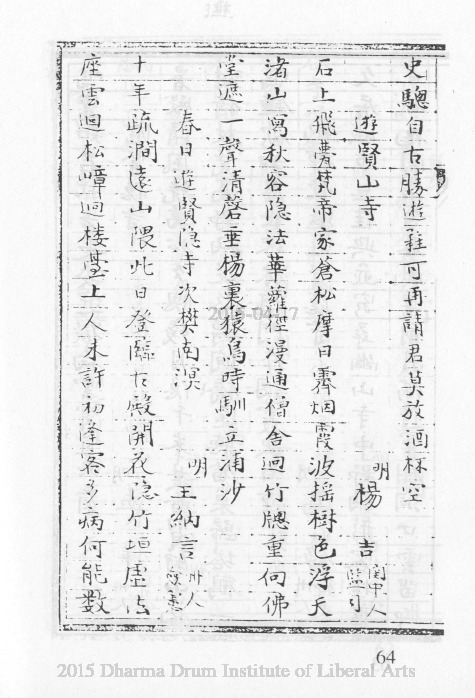 史驄自古勝遊難可再請君莫放酒杯空
遊賢山寺
明楊吉関中人監司
石上飛甍梵帝家蒼松摩日霽烟霞波揺樹色浮天
渚山寫秋容隐法華蘿徑漫通僧舍迴竹牕重向佛
堂遮一聲清磬垂楊裏猿鳥時馴立浦沙
春日遊賢隐寺次樊南溟
明王納言州人
十年疏澗遠山隈此日登臨古殿開花隐竹垣虚法
座雲迴松嶂迴楼臺上人未許初逢客多病何能数
64
2015 Dharma Drum Institute of Liberal Arts